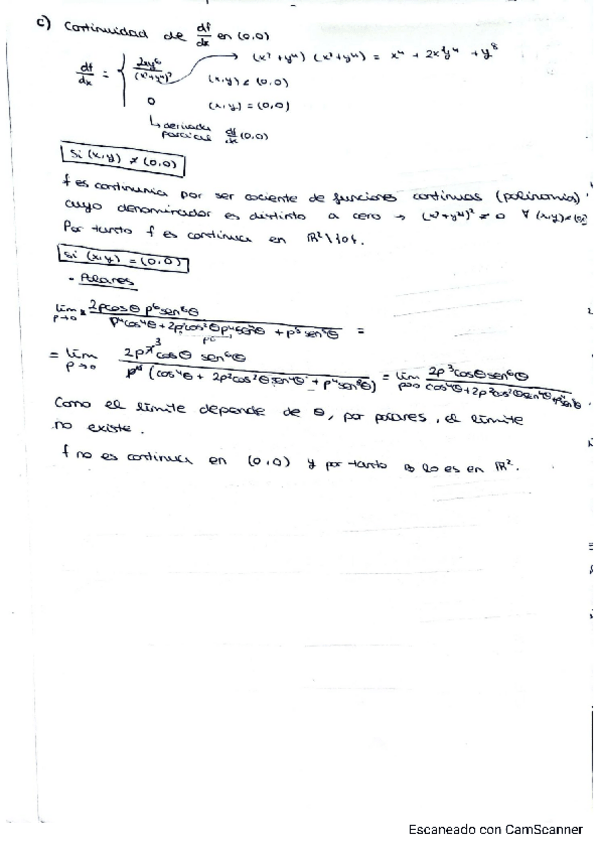 c) Continuidad de df/dx en (0,0)
→ (x²+y⁴) (x²+y⁴) = x⁴ + 2x²y⁴ + y⁸
df/dx = { 2xy⁶/(x²+y⁴)² (x,y) ≠ (0,0)
0 (x,y) = (0,0)
↳ derivada
parcial df/dx (0,0)
Si (x,y) ≠ (0,0)
f es continua por ser cociente de funciones continuas (polinomio)
cuyo denominador es distinto a cero → (x²+y⁴)² ≠ 0 ∀ (x,y)≠(0,0)
Por tanto f es continua en ℝ²\{0}.
Si (x,y) = (0,0)
- Polares
lim ρ→0 2ρcosθ ρ⁶sen⁶θ / ρ⁴cos⁴θ + 2ρ²cos²θρ⁴sen⁴θ + ρ⁸sen⁸θ =
= lim ρ→0 2ρ³cosθ sen⁶θ / ρ⁴(cos⁴θ + 2ρ²cos²θsen⁴θ + ρ⁴sen⁸θ) = lim ρ→0 2ρ³cosθsen⁶θ / cos⁴θ+2ρ²cos²θsen⁴θ+ρ⁴sen⁸θ
Como el límite depende de θ, por polares, el límite
no existe.
f no es continua en (0,0) y por tanto lo es en ℝ².
Escaneado con CamScanner